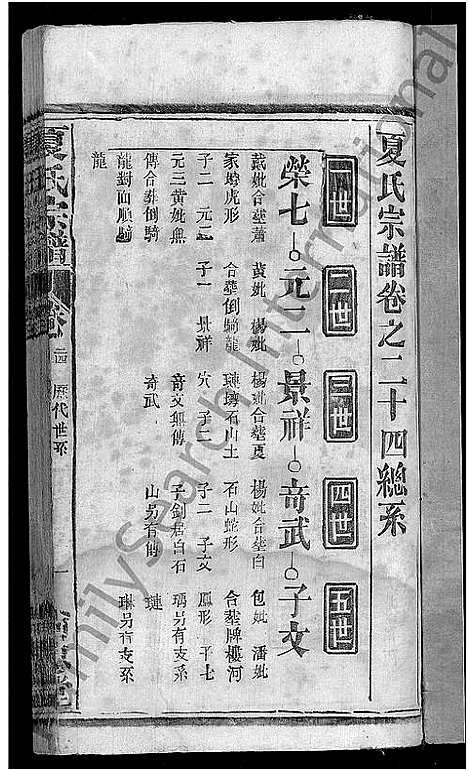 夏氏宗譜卷之二十四總系
一世 二世 三世 四世 五世
榮七 元一 景祥 奇武 子文
戴妣合塟蕭
家塆虎形
子二 元二
元三黃妣無
傳合塟倒騎
龍對面順騎
龍
黃妣 楊妣
合塟倒騎龍
子一 景祥
楊妣合塟夏
璉塆石山土
穴 子二
奇文無傳
奇武
楊妣合塟白
石山蛇形
子二 子文
子劍居白石
山另有傳
包妣 潘妣
合塟牌樓河
鳳形 子七
璊另有支系
璉
琳另有支系
夏氏宗譜
卷
二四 歷代世系
一
FamilySearch International